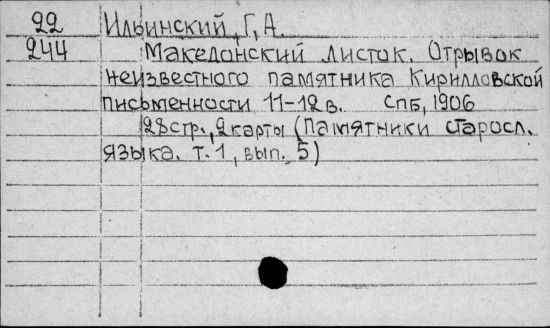 22 Ильинский, Г, А.
244 Македонский листок. Отрывок
неизвестного памятника Кирилловской
письменности 11-12 в. СПб, 1906
28 стр., 2 карты (Памятники старосл.
языка. т. 1, вып. 5)